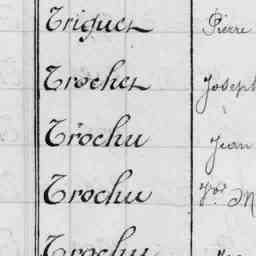 Triquet Pierre
Trochet Joseph
Trochu Jean
Trochu Jos. M
Trochu